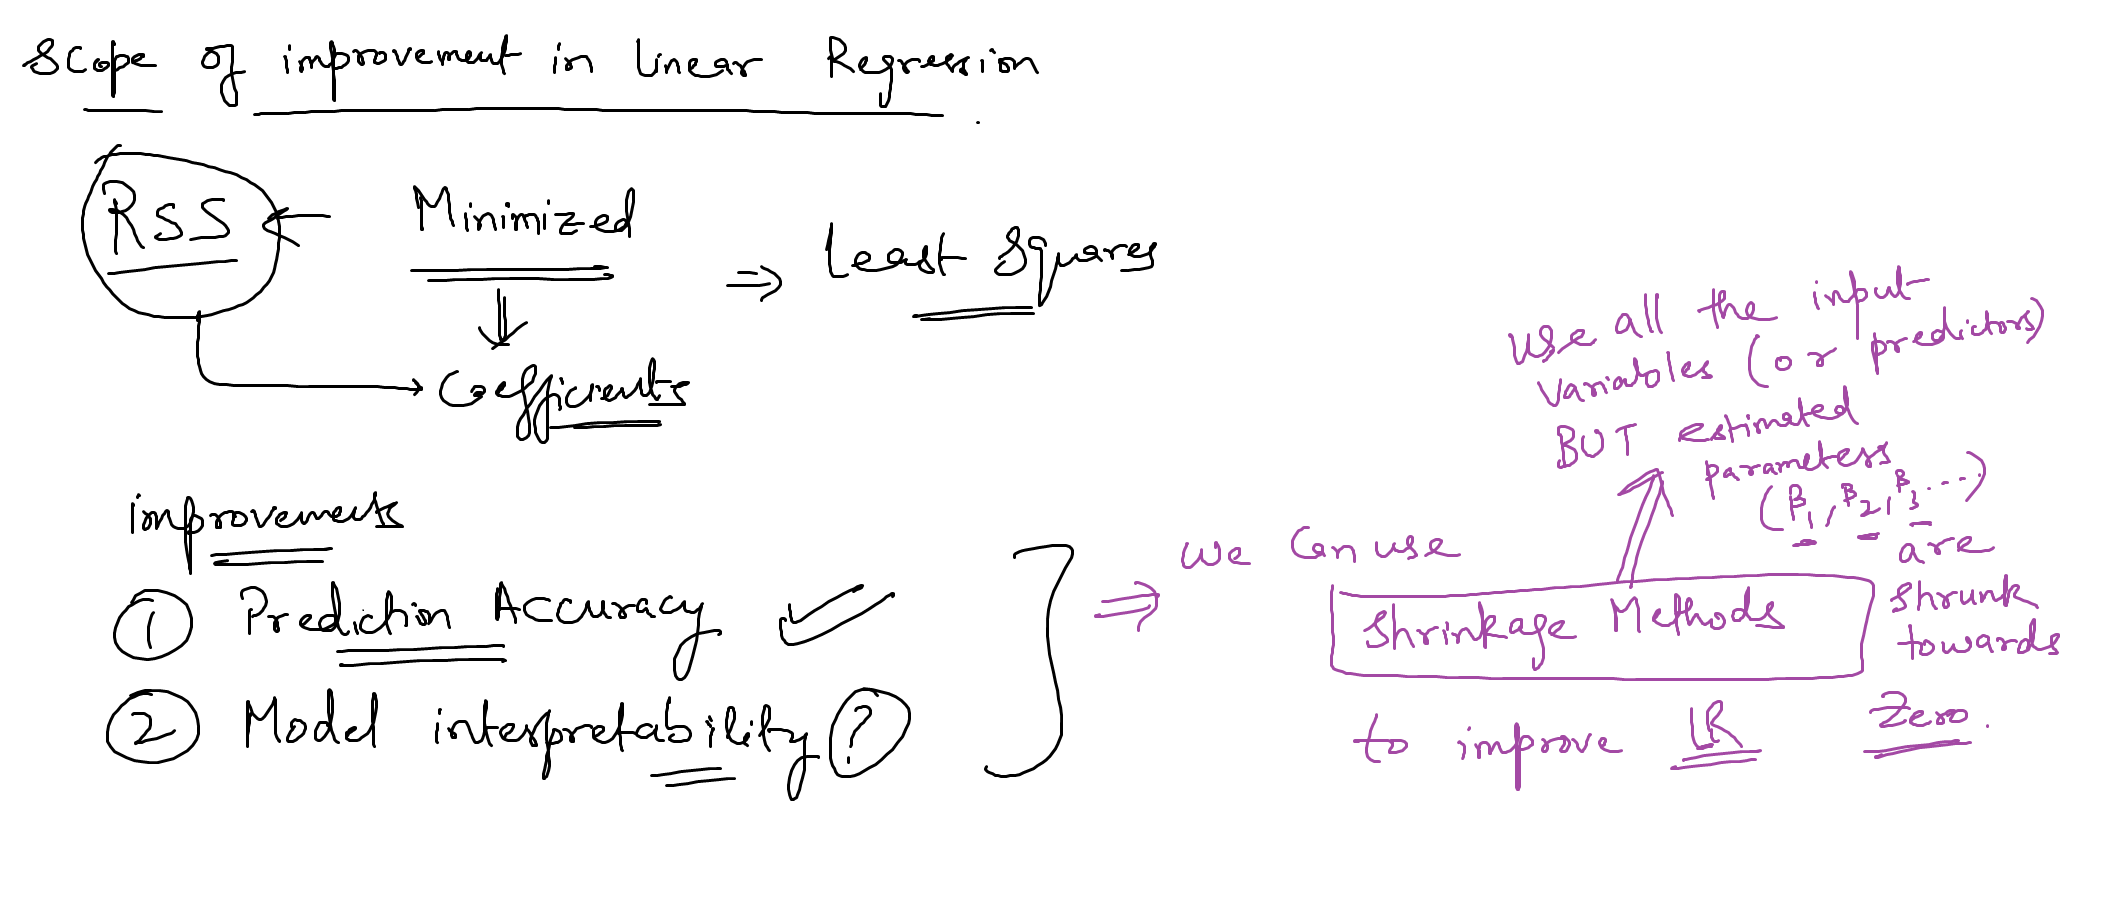 Scope of improvement in Linear Regression
RSS ← Minimized
⇒ Least Squares
Coefficients
improvements
① Prediction Accuracy ✓
② Model interpretability ?
⇒ we Can use
Shrinkage Methods
to improve LR
Use all the input
variables (or predictors)
BUT estimated
parameters
(β1, β2, β3 ...)
are
shrunk
towards
Zero.